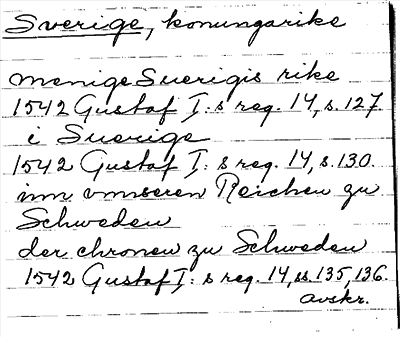 Sverige, konungarike
menige Suerigis rike
1542 Gustaf I:s reg. 14, s. 127.
i Suerige
1542 Gustaf I:s reg. 14, s. 130.
inn vnnseren Reichen zu
Schweden
der chronen zu Schweden
1542 Gustaf I:s reg. 14, ss. 135, 136.
avskr.